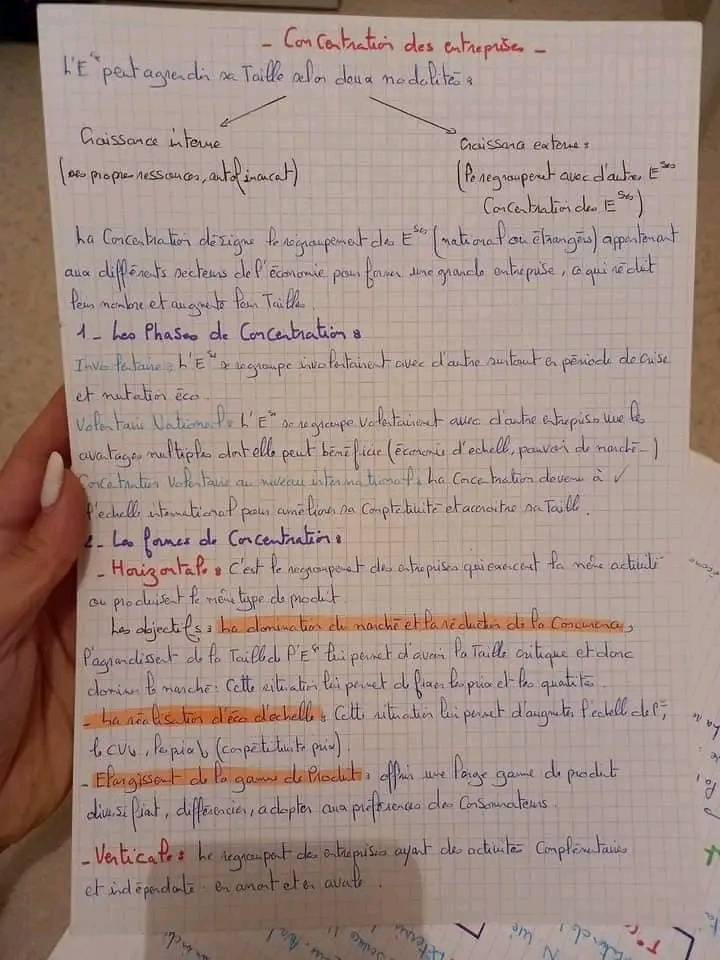 - Concentration des entreprises -
L'E^se peut agrandir sa Taille selon deux modalités :
Croissance interne
(ses propres ressources, autofinancat)
Croissance externe :
(Le regroupement avec d'autres E^ses
Concentration des E^ses)
La Concentration désigne le regroupement des E^ses (national ou étrangers) appartenant
aux différents secteurs de l'économie pour former une grande entreprise, ce qui réduit
leur nombre et augmente leur Taille.
1 - Les Phases de Concentration :
Involontaire : L'E^se se regroupe involontairent avec d'autre surtout en période de crise
et mutation éco.
Volontaire Nationale : L'E^se se regroupe volontairement avec d'autre entreprise vue les
avantages multiples dont elle peut bénéficie (économie d'echell, pouvoir de marché...)
Concentration Volontaire au niveau international : La Concentration devenu à
l'echelle international pour améliorer sa Compétitivité et accroitre sa Taille.
2 - Les formes de Concentration :
- Horizontale : C'est le regroupement des entreprises qui exercent la même activité
ou produisent le même type de produit.
Les objectifs : La domination du marché et la réduction de la Concurrence,
l'agrandissent de la Taille de l'E^se lui permet d'avoir la Taille critique et donc
dominer le marché : Cette situation lui permet de fixer les prix et les quantité.
- La réalisation d'éco d'echelle : Cette situation lui permet d'augmenter l'échell de P°,
le CVU, le prix ↓ (compétitivité prix).
- Elargissent de la gamme de Produit : offrir une large gamme de produit
diversifiant, différencier, adapter aux préférences des Consommateurs
- Verticale : Le regroupent des entreprises ayant des activités Complémentaires
et indépendante en amont et en avale.